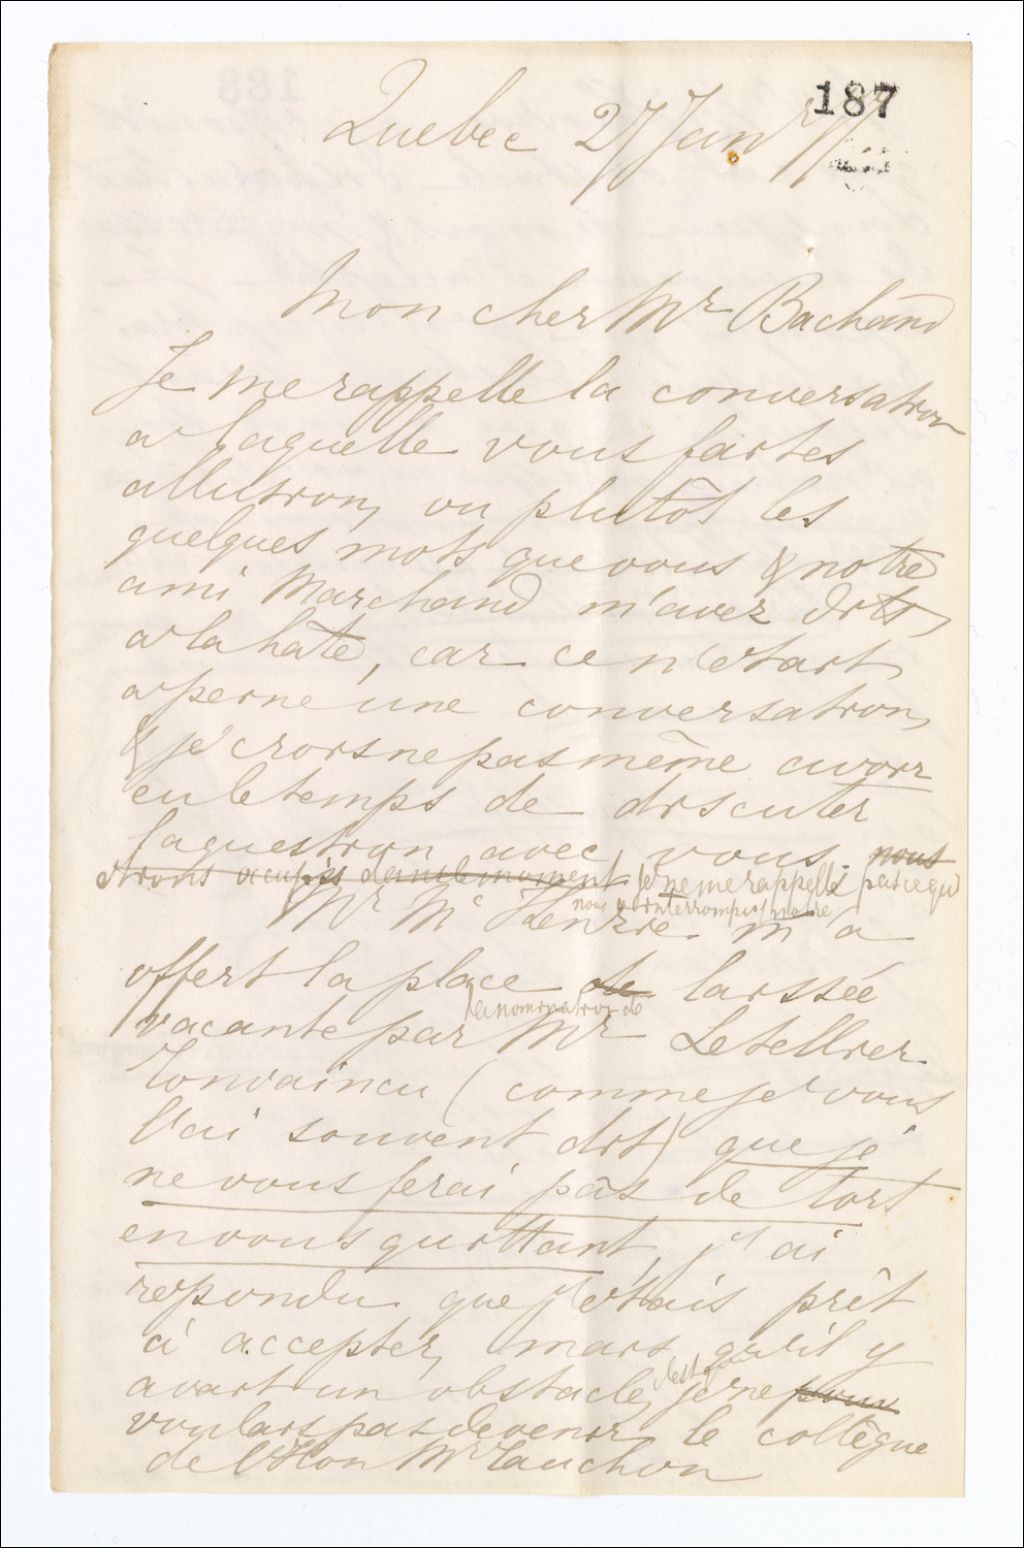 187
Quebec 27 Janr 77
Mon cher Mr Bachand
Je me rappelle la conversation
à laquelle vous faites
allusion, ou plutôt les
quelques mots que vous & notre
ami Marchand m'avez dits
à la hâte, car ce n'était
à peine une conversation
& je crois ne pas même avoir
eu le temps de discuter
la question avec vous. nous
étions occupés dans le moment Je ne me rappelle pas ce qui
nous a interrompus notre
Mr McKenzie m'a
offert la place de laissée
la nomination de
vacante par Mr Letellier
Convaincu (comme je vous
l'ai souvent dit) que je
ne vous ferai pas de tort
en vous quittant, j'ai
répondu que j'étais prêt
à accepter, mais qu'il y
c'est que
avait un obstacle, je ne pour
voulais pas devenir le collègue
de l'Hon Mr Cauchon